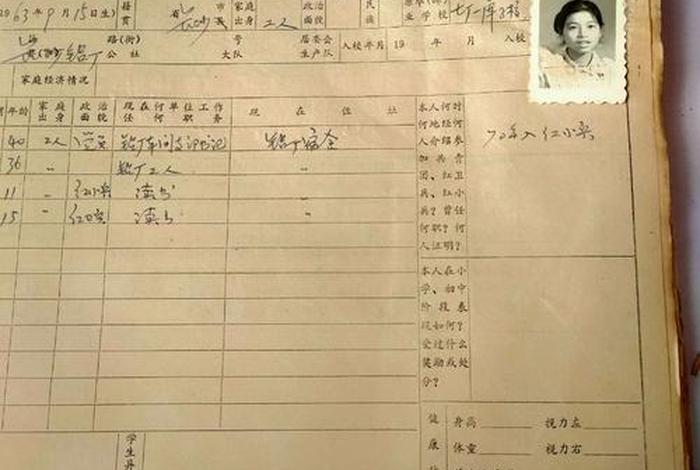 1963年9月15日生) 籍贯 省长沙市县 家庭出身 工人 政治面貌 民族 学校
路(街) 号 居委会 入校年月 19 年 月 入校
公社 大队 生产队
家庭经济情况
年龄 家庭出身 政治面貌 现在何单位工作任何职务 现在住址
40 工人 党员 铝厂车间支部书记 铝厂宿舍
36 〃 铝厂工人 〃
11 〃 红小兵 读书 〃
15 〃 红卫兵 读书 〃
本人何时何地经何人介绍参加共青团、红卫兵、红小兵?曾任何职?何人证明?
70年入红小兵
本人在小学、初中阶段表现如何?受过什么奖励或处分?
健康 身高 视力左
体重 视力右
学生